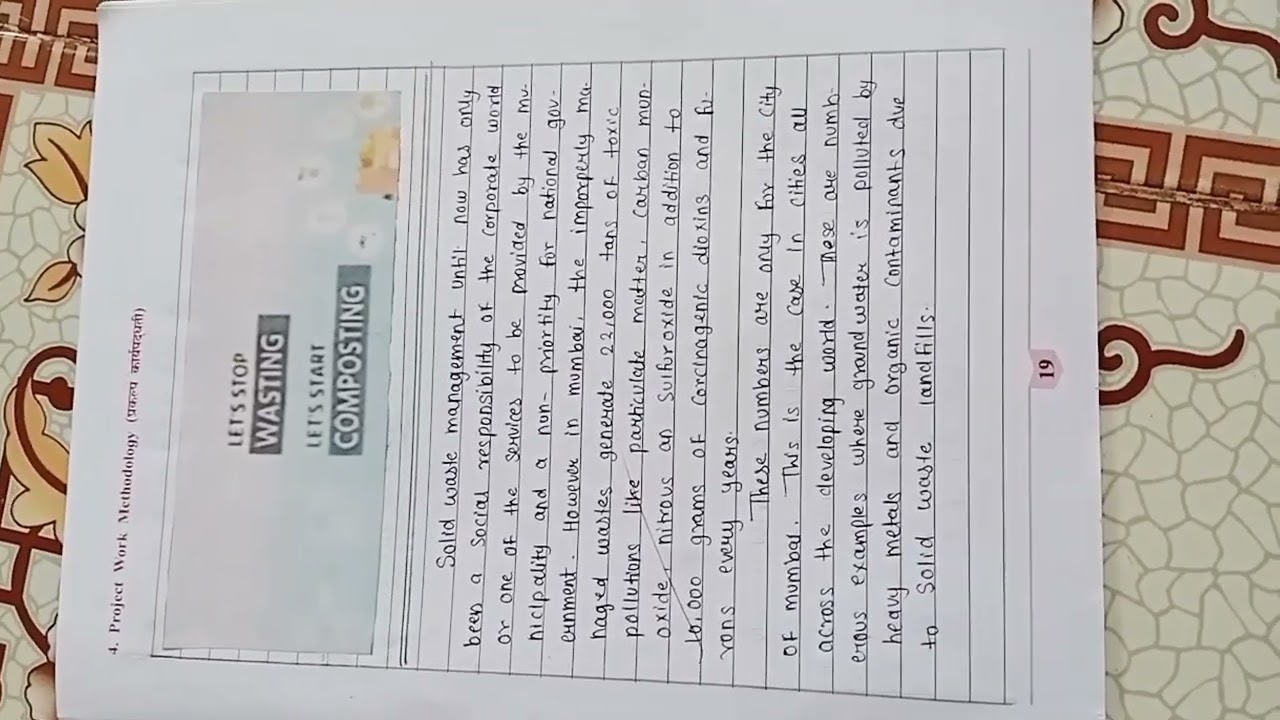 4. Project Work Methodology (प्रकल्प कार्यपद्धती)
LET'S STOP
WASTING
LET'S START
COMPOSTING
Solid waste management until now has only
been a Social responsibility of the corporate world
or one of the services to be provided by the mu-
nicipality and a non- priortity for national gov-
ernment. However in mumbai, the imporperly ma-
naged wastes generate 22,000 tans of toxic
pollutions like particulate matter, Carban mon-
oxide, nitrous an sulfuroxide in addition to
10,000 grams of carcinagenic dioxins and fu-
rans every years.
These numbers are only for the city
of mumbai. This is the case in cities all
across the developing world. These are numb-
erous examples where grand water is polluted by
heavy metals and organic contaminants due
to solid waste landfills.
19